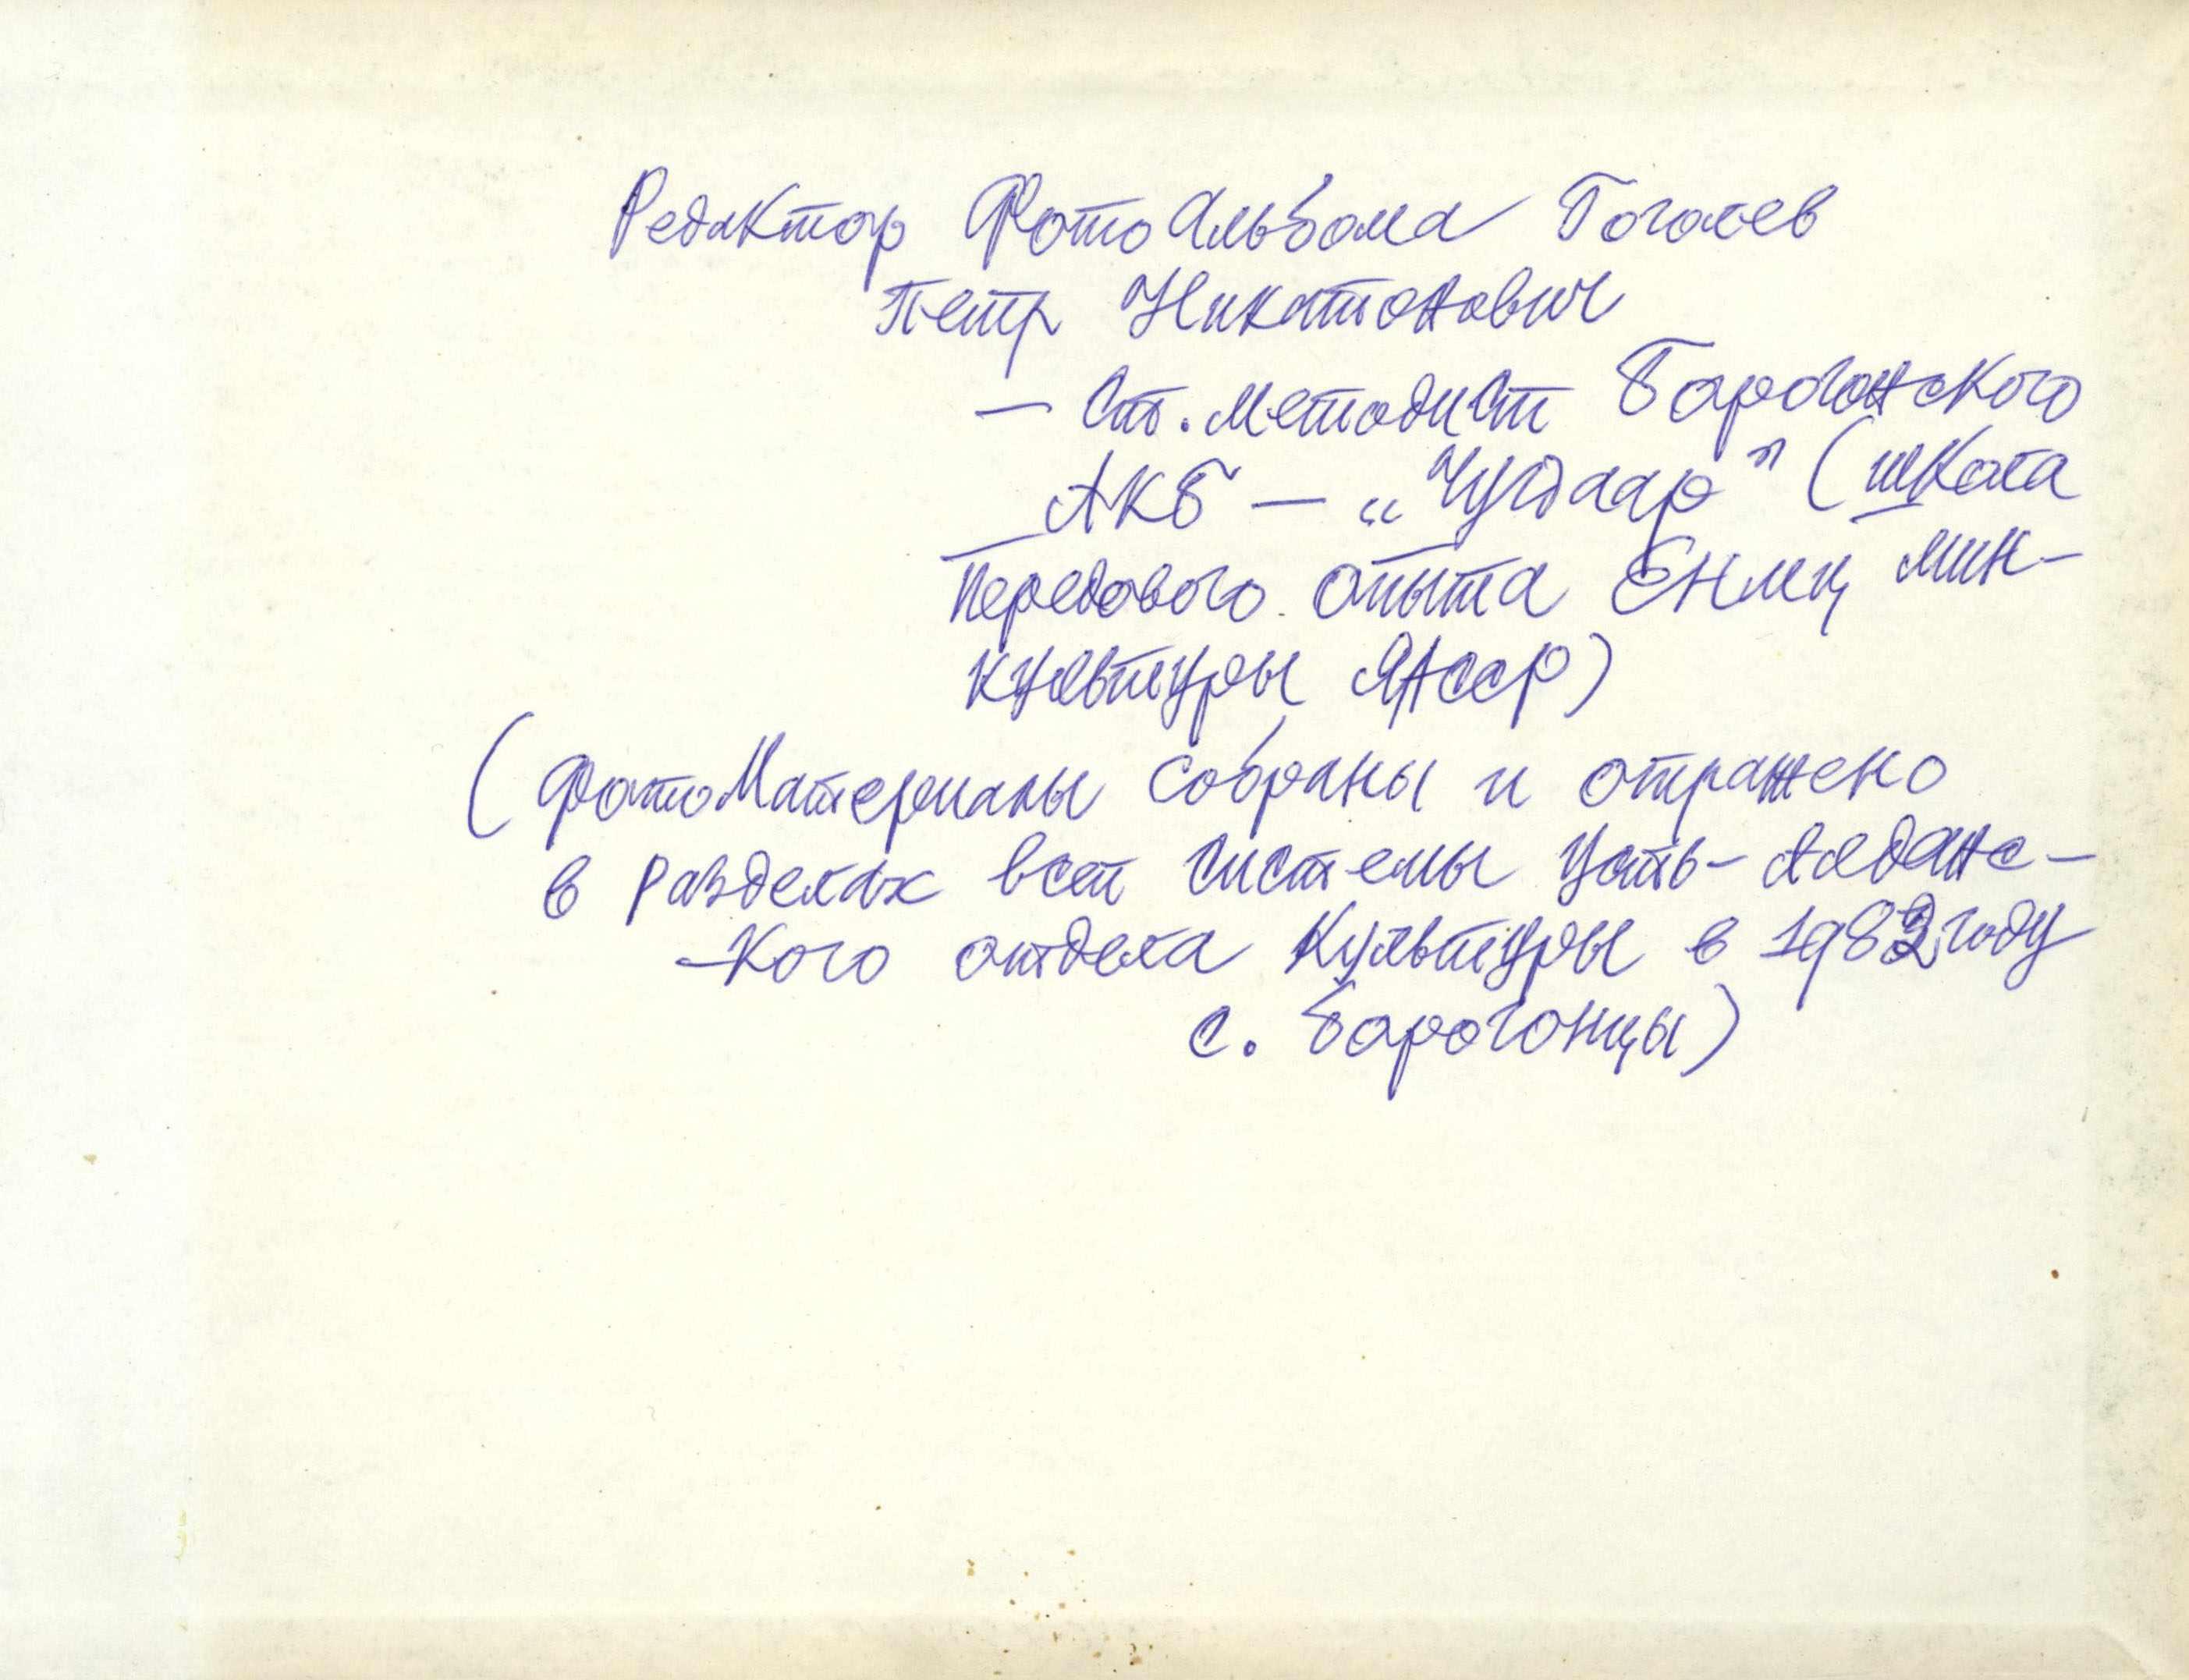 Редактор Фотоальбома Гоголев
Петр Никатонович
— Ст. методист Борогонского
АКБ — „Чугдаар" (школа
передового опыта ЕНМЦ мин-
культуры ЯАССР)
(фотоматериалы собраны и отражено
в разделах всей системы Усть-Алданс-
-кого отдела культуры в 1983 году
с. Борогонцы)